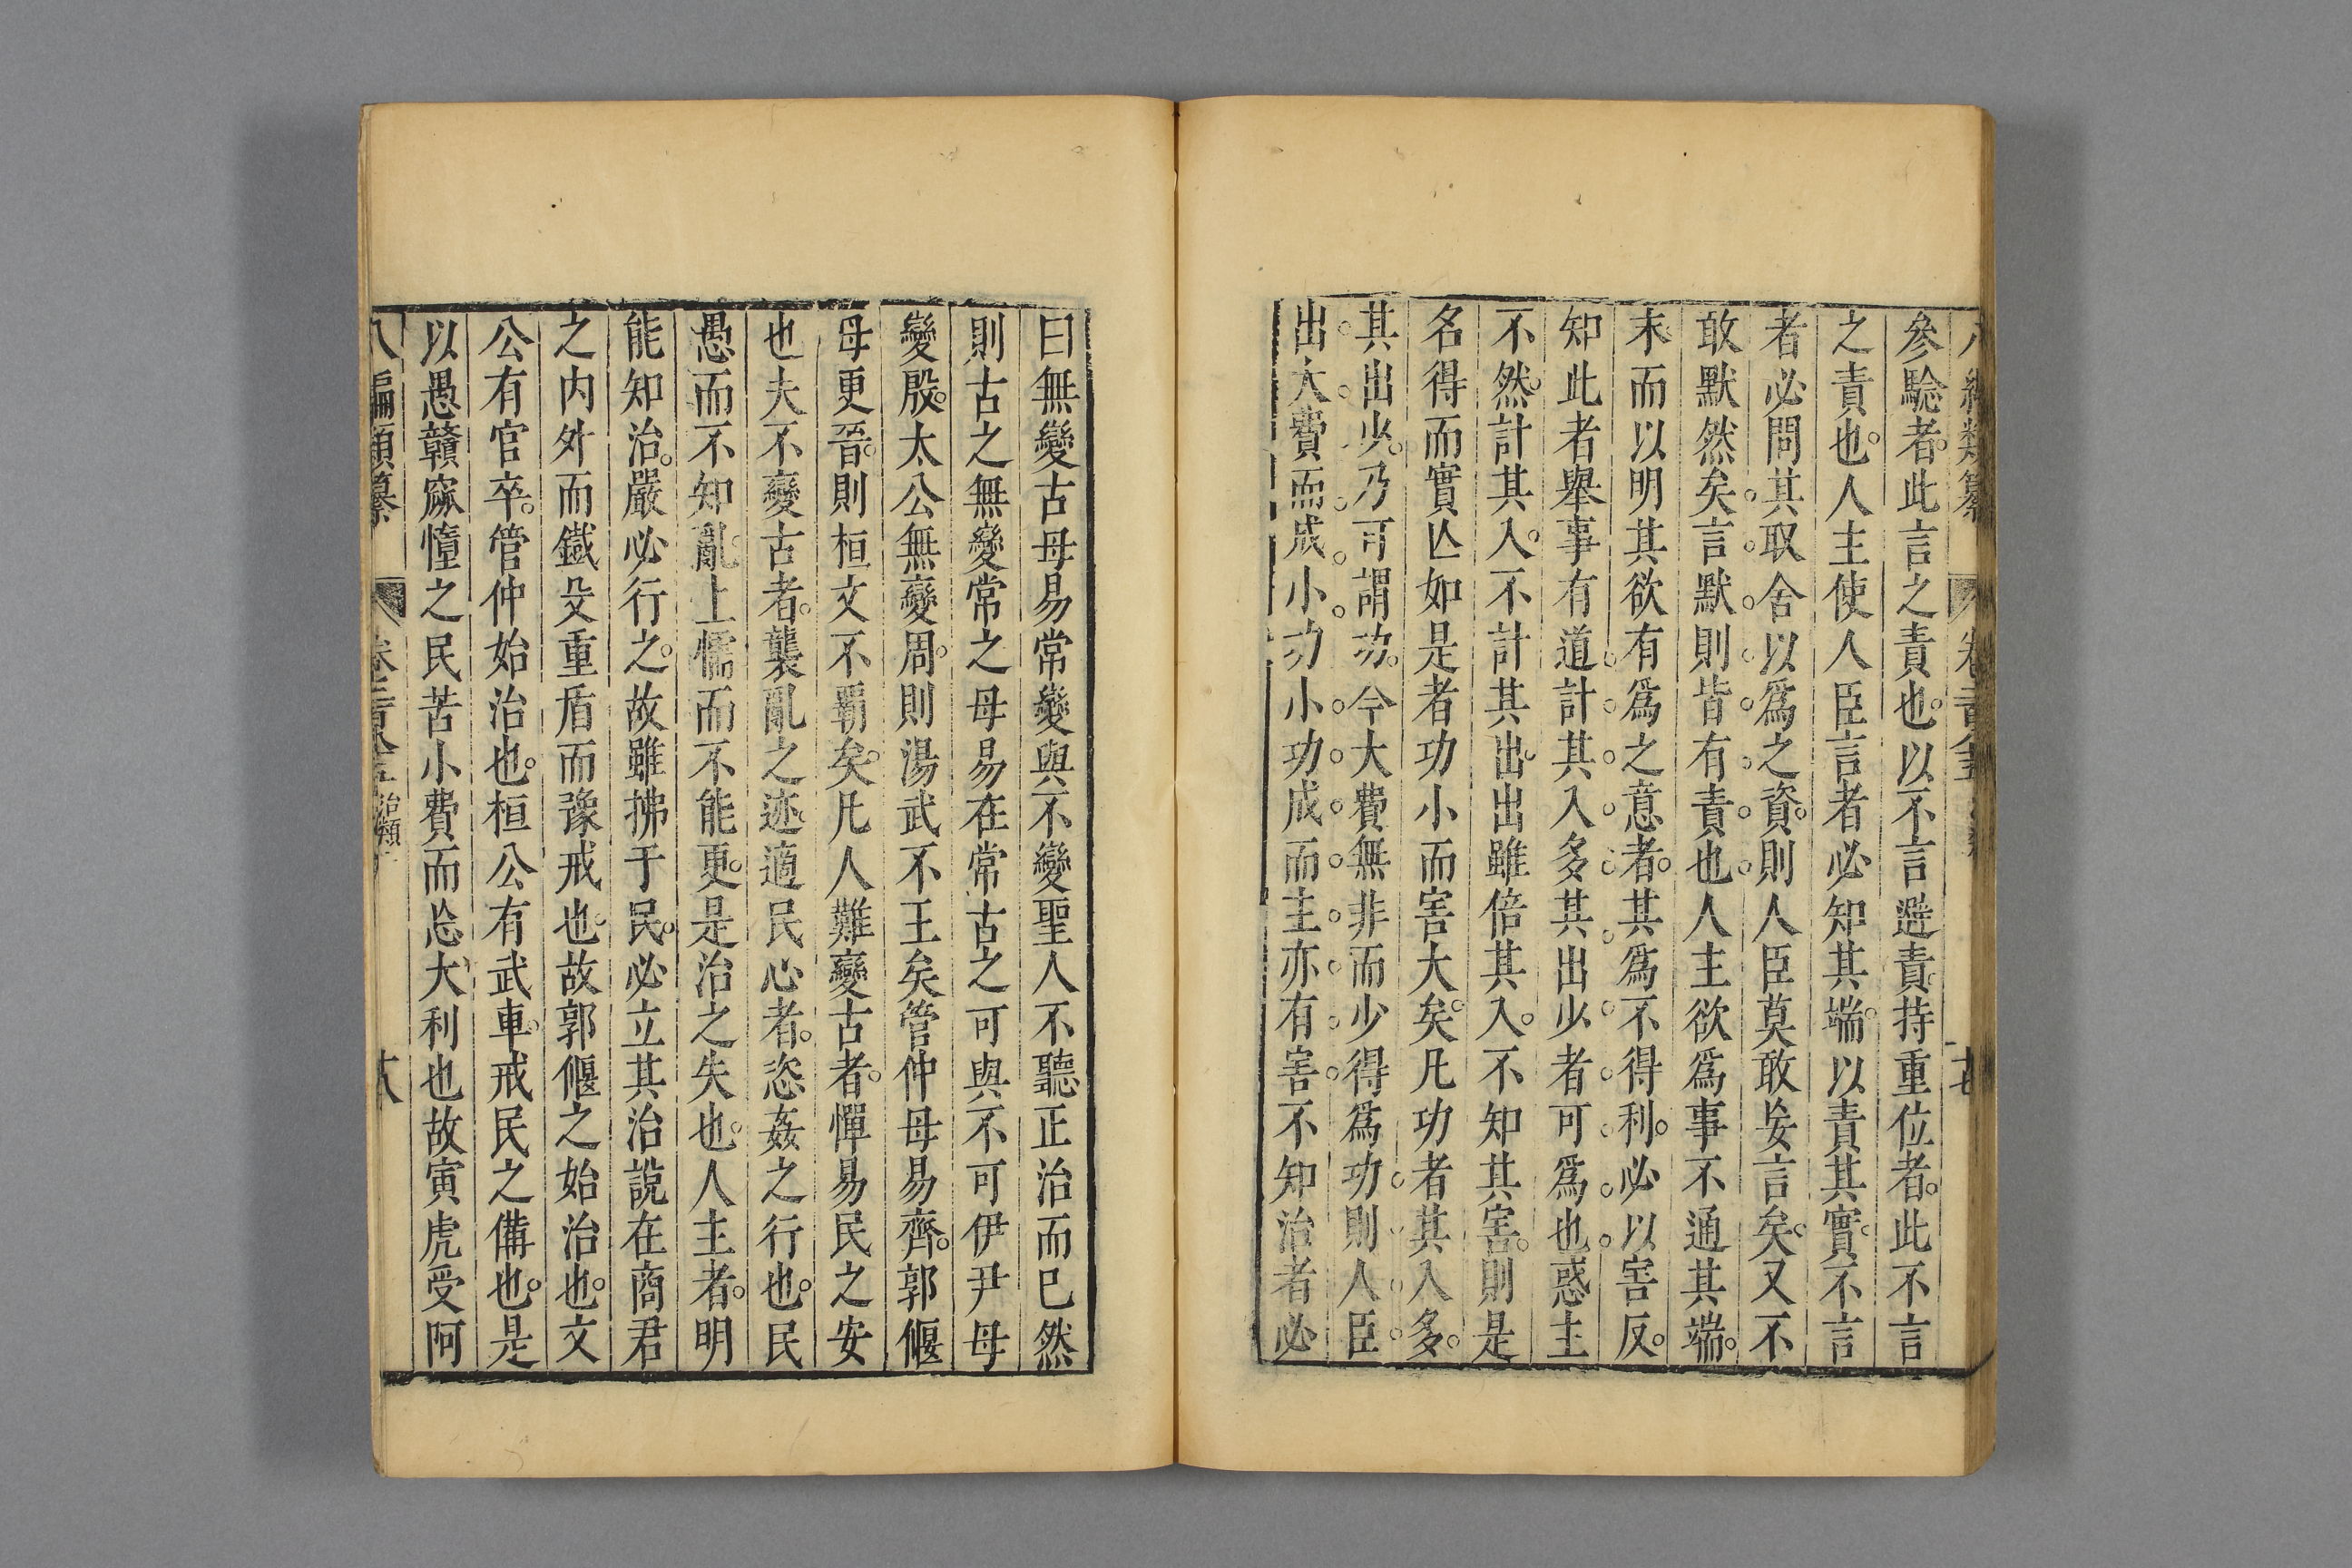 八編類纂 卷二百八十五 治類 十七
參驗者此言之責也以不言避責持重位者此不言
之責也人主使人臣言者必知其端以責其實不言
者必問其取舍以爲之資則人臣莫敢妄言矣又不
敢默然矣言默則皆有責也人主欲爲事不通其端
末而以明其欲有爲之意者其爲不得利必以害反
知此者舉事有道計其入多其出少者可爲也惑主
不然計其入不計其出出雖倍其入不知其害則是
名得而實亾如是者功小而害大矣凡功者其入多
其出少乃可謂功今大費無非而少得爲功則人臣
出大費而成小功小功成而主亦有害不知治者必
曰無變古毋易常變與不變聖人不聽正治而已然
則古之無變常之毋易在常古之可與不可伊尹毋
變殷太公無變周則湯武不王矣管仲毋易齊郭偃
毋更晉則桓文不霸矣凡人難變古者憚易民之安
也夫不變古者襲亂之迹適民心者恣姦之行也民
愚而不知亂上懦而不能更是治之失也人主者明
能知治嚴必行之故雖拂于民必立其治說在商君
之内外而鐵殳重盾而豫戒也故郭偃之始治也文
公有官卒管仲始治也桓公有武車戒民之備也是
以愚贛窳憧之民苦小費而忩大利也故寅虎受阿
八編類纂 卷二百八十五 治類 十八